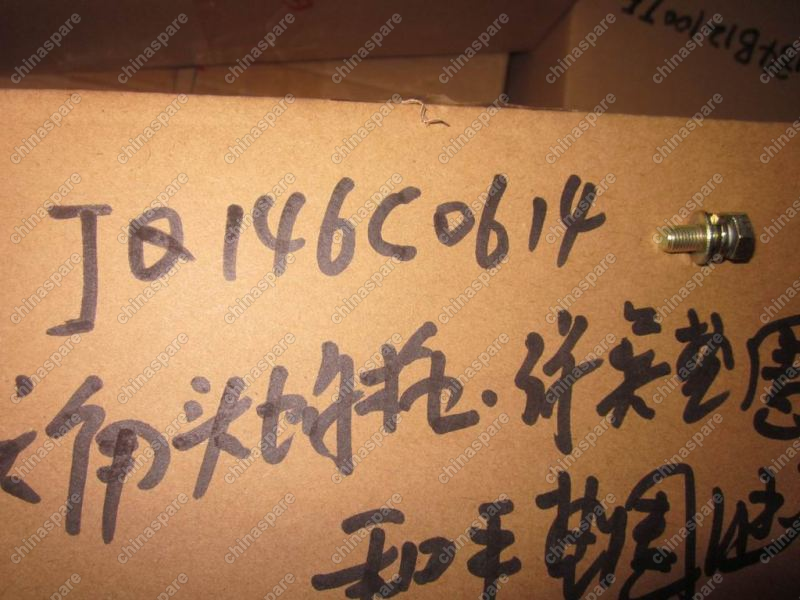 JQ146C0614
六角头螺栓.弹簧垫圈
和平垫圈